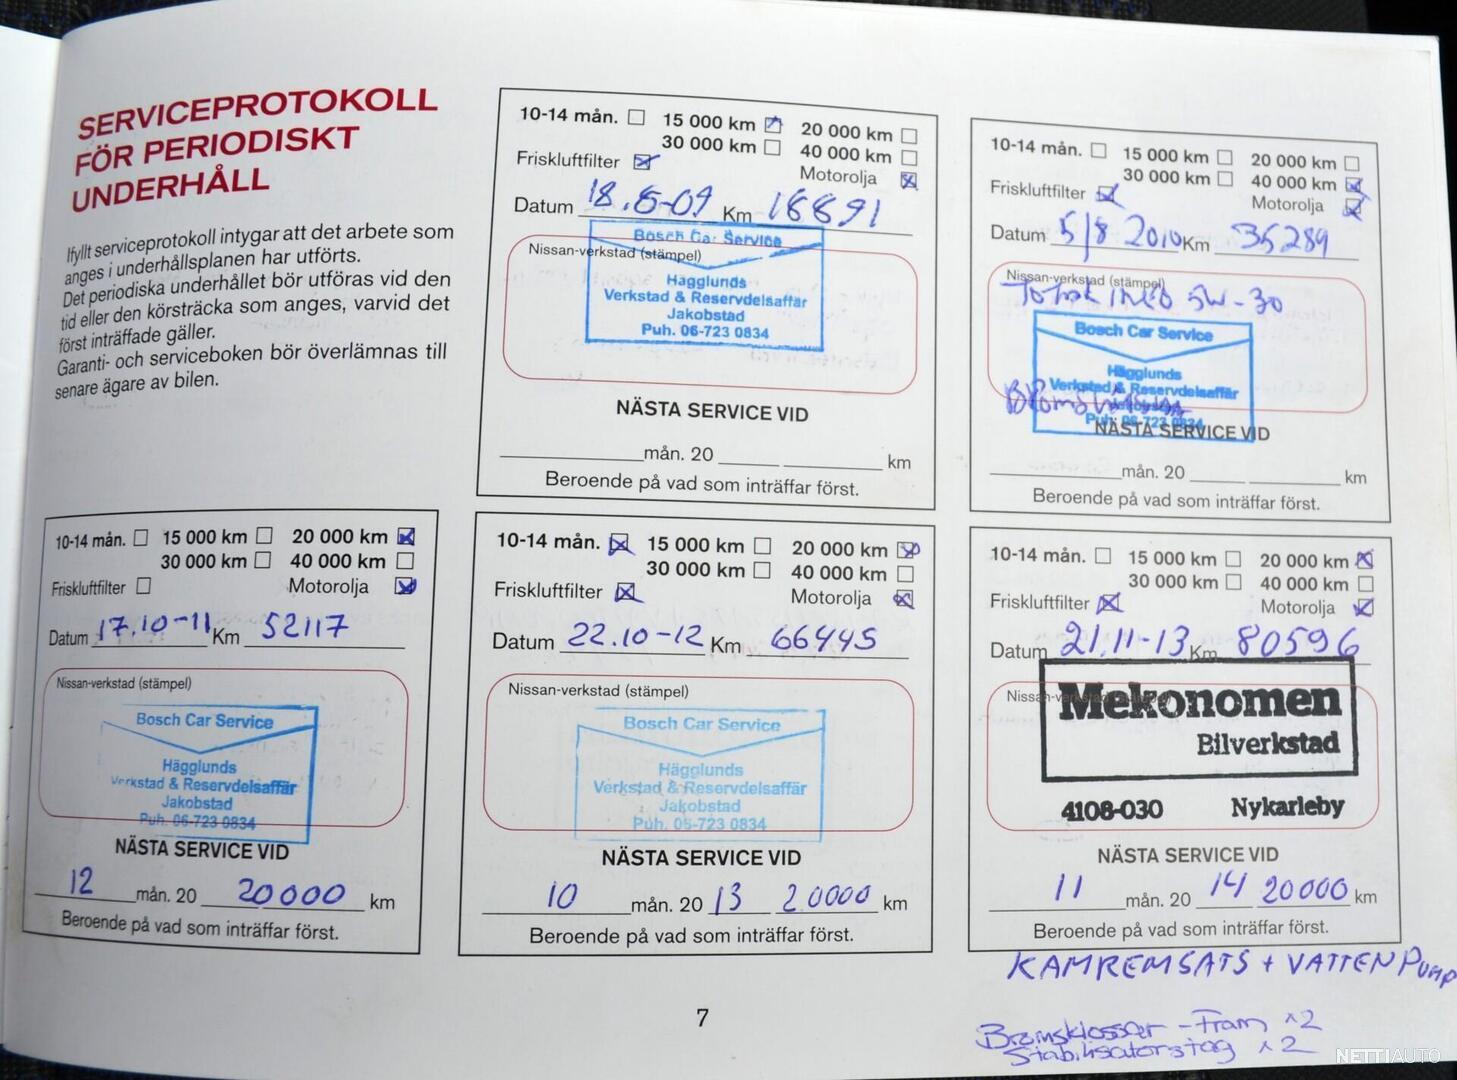 SERVICEPROTOKOLL
FÖR PERIODISKT
UNDERHÅLL
Ifyllt serviceprotokoll intygar att det arbete som
anges i underhållsplanen har utförts.
Det periodiska underhållet bör utföras vid den
tid eller den körsträcka som anges, varvid det
först inträffade gäller.
Garanti- och serviceboken bör överlämnas till
senare ägare av bilen.
10-14 mån. 15 000 km 20 000 km
30 000 km 40 000 km
Friskluftfilter Motorolja
Datum 18.8-09 Km 18891
Nissan-verkstad (stämpel)
Bosch Car Service
Hägglunds
Verkstad & Reservdelsaffär
Jakobstad
Puh. 06-723 0834
NÄSTA SERVICE VID
mån. 20 km
Beroende på vad som inträffar först.
10-14 mån. 15 000 km 20 000 km
30 000 km 40 000 km
Friskluftfilter Motorolja
Datum 5/8 2010 Km 35289
Nissan-verkstad (stämpel)
5W-30
Bosch Car Service
Hägglunds
Verkstad & Reservdelsaffär
Jakobstad
Puh. 06-723 0834
NÄSTA SERVICE VID
mån. 20 km
Beroende på vad som inträffar först.
10-14 mån. 15 000 km 20 000 km
30 000 km 40 000 km
Friskluftfilter Motorolja
Datum 17.10-11 Km 52117
Nissan-verkstad (stämpel)
Bosch Car Service
Hägglunds
Verkstad & Reservdelsaffär
Jakobstad
Puh. 06-723 0834
NÄSTA SERVICE VID
12 mån. 20 20000 km
Beroende på vad som inträffar först.
10-14 mån. 15 000 km 20 000 km
30 000 km 40 000 km
Friskluftfilter Motorolja
Datum 22.10-12 Km 66445
Nissan-verkstad (stämpel)
Bosch Car Service
Hägglunds
Verkstad & Reservdelsaffär
Jakobstad
Puh. 06-723 0834
NÄSTA SERVICE VID
10 mån. 20 13 20000 km
Beroende på vad som inträffar först.
10-14 mån. 15 000 km 20 000 km
30 000 km 40 000 km
Friskluftfilter Motorolja
Datum 21.11-13 Km 80596
Nissan-verkstad (stämpel)
Mekonomen
Bilverkstad
4108-030 Nykarleby
NÄSTA SERVICE VID
11 mån. 20 14 20000 km
Beroende på vad som inträffar först.
KAMREMSATS + VATTENPUMP
Bromsklossar - Fram x2
Stabilisatorstag x2
7
NETTIAUTO